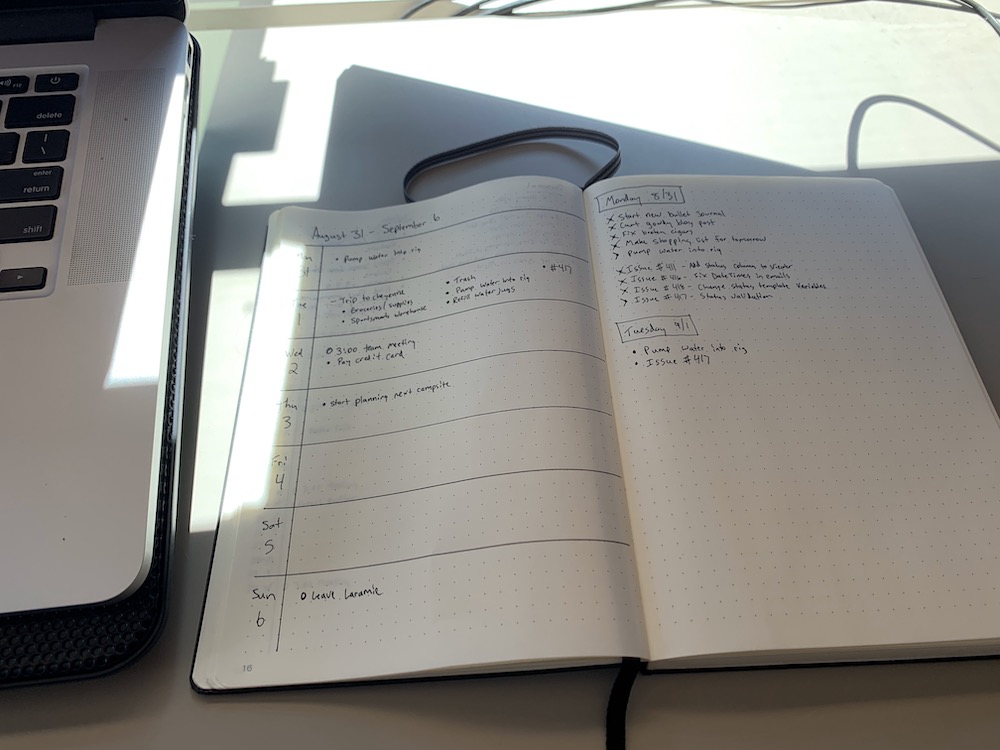 delete
enter
return
shift
August 31 - September 6
31
• Pump water into rig
1
- Trip to cheyenne
• Groceries/supplies
• Sportsmans warehouse
• Trash
• Pump water into rig
• Refill water jugs
• #417
Wed
2
O 3:00 team meeting
• Pay credit card
Thu
3
• Start planning next campsite
Fri
4
Sat
5
Sun
6
O Leave Laramie
16
Monday 8/31
× Start new bullet journal
× blog post
× Fix broken
× Make shopping list for tomorrow
> Pump water into rig
× Issue #411 - Add status column to
× Issue #416 - Fix DateTimes in emails
× Issue #418 - Change status template variables
> Issue #417 - Status
Tuesday 9/1
• Pump water into rig
• Issue #417